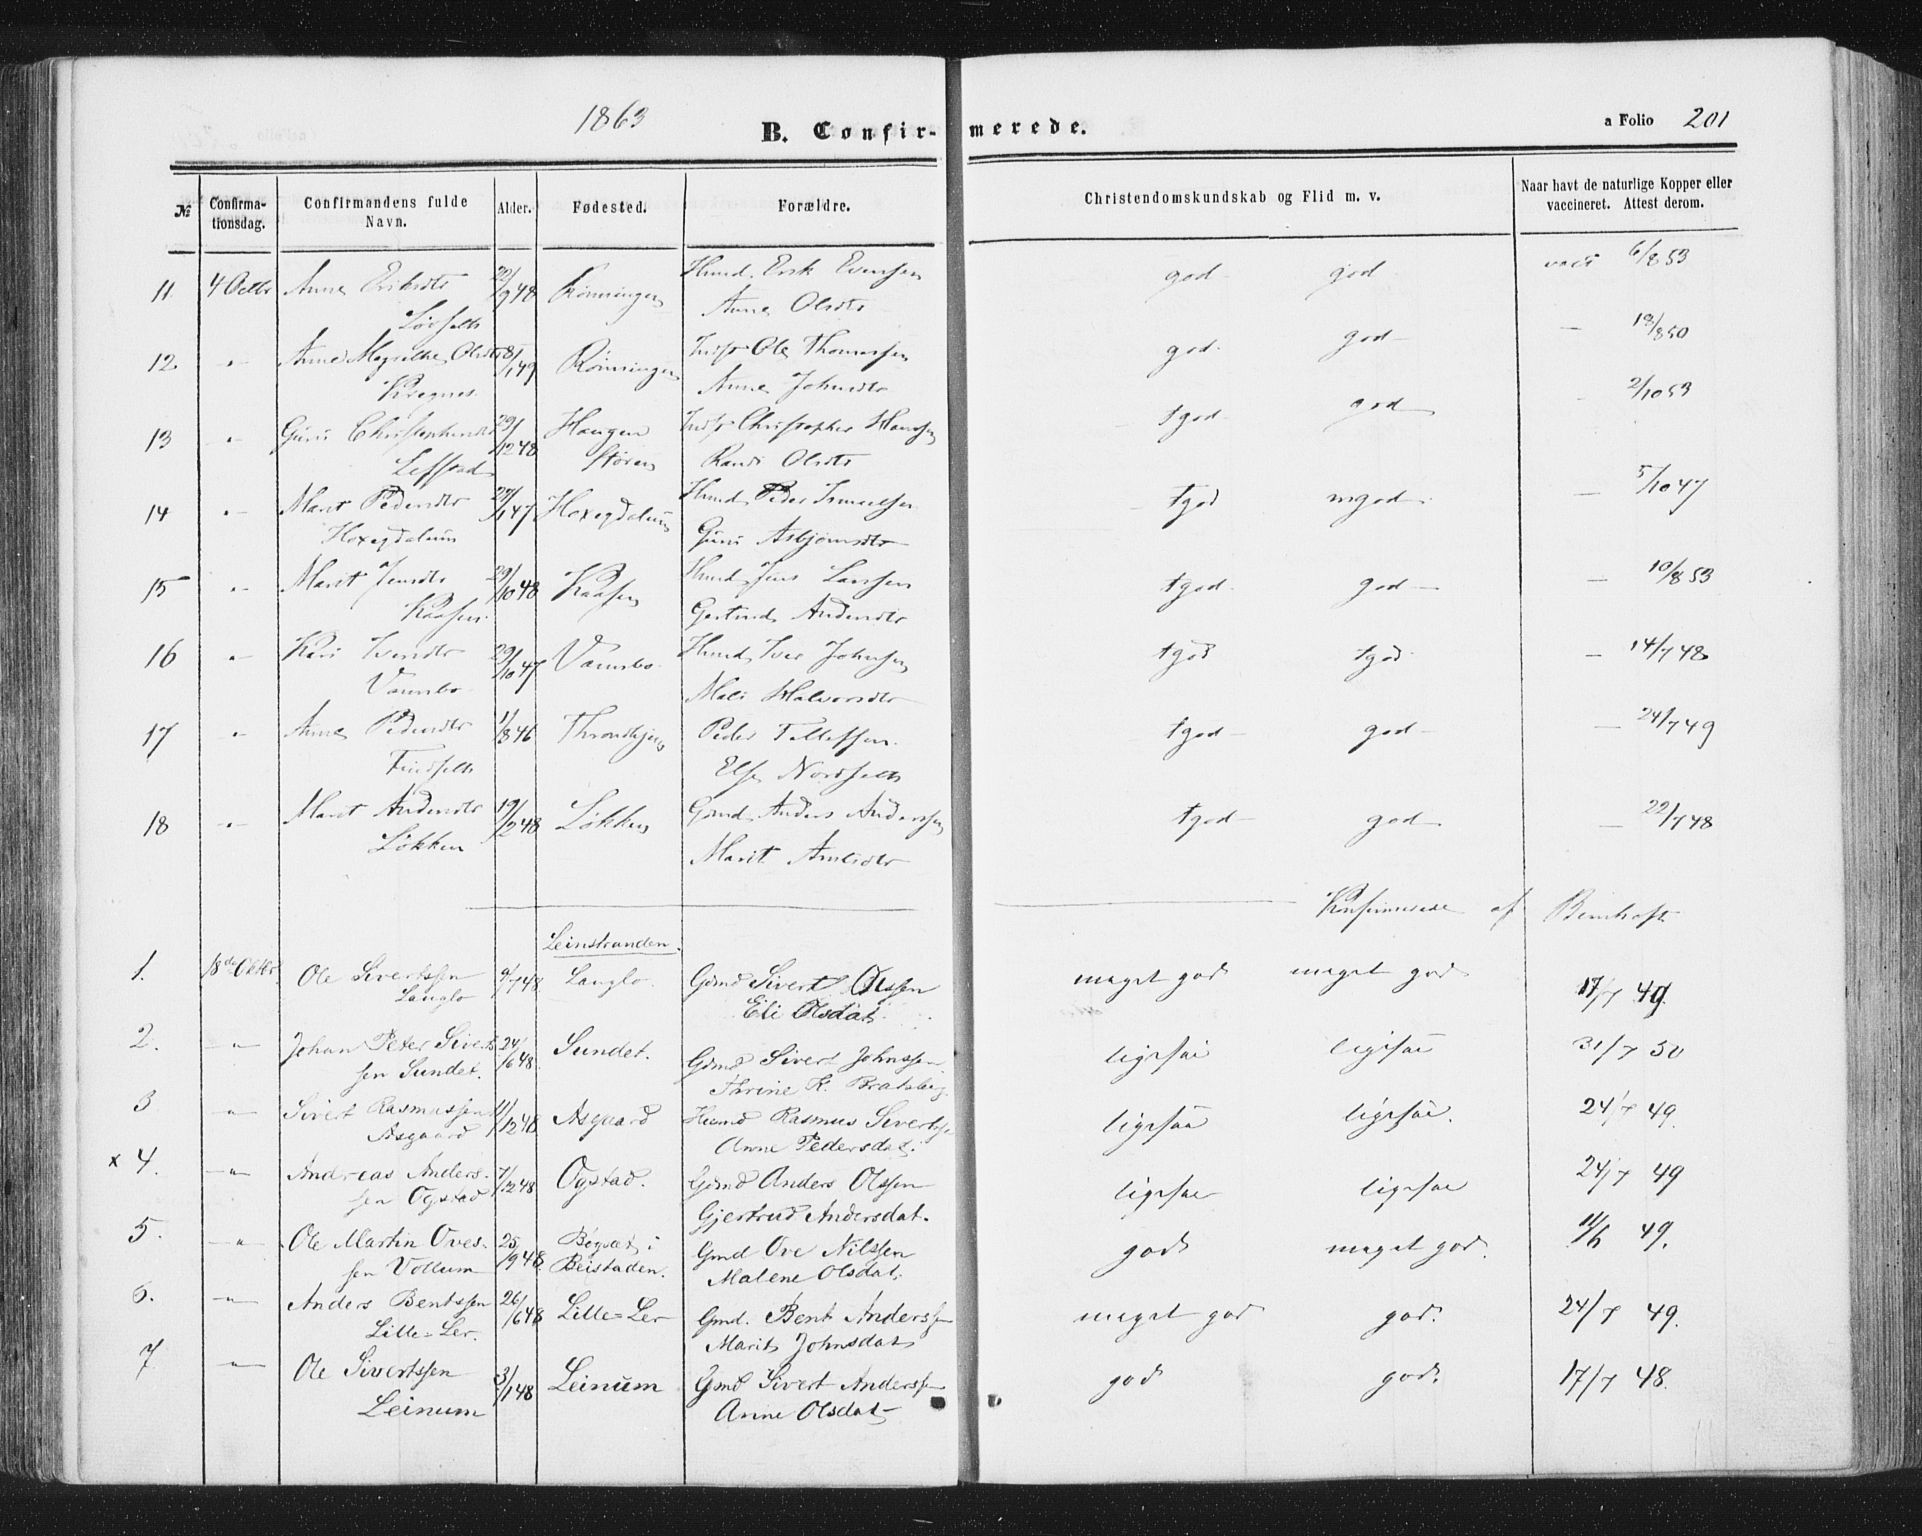 1863
B. Confirmerede.
a Folio 201
№ Confirmationsdag. Confirmandens fulde Navn. Alder. Fødested. Forældre. Christendomskundskab og Flid m. v. Naar havt de naturlige Kopper eller vaccineret. Attest derom.
11. 4 Octbr Anne Eriksdtr 22/9 48 Rønningen Huusmd. Erik Evensen god god vacc 6/8 53
Anne Olsdtr
12. " Anne Olsdtr 8/1 49 Rønningen Inds Ole Thomassen god god — 18/8 50
Kregnes Anne Johnsdtr
13 " Guri Christophersdtr 29/12 48 Haugen Inds Christopher Hansen tgod god 2/10 53
Lefstad Støren Randi Olsdtr
14 " Marit Pedersdtr Peder tgod mgod — 5/10 47
Guri Asbjørnsdtr
15 " Marit Jensdtr 29/10 48 Kaasen Jens Larsen tgod god — 10/8 53
Kaasen Gertrud Andersdtr
16 " Kari Iversdtr 29/10 47 Vamsbo Iver Johnsen tgod tgod — 14/7 48
Vamsbo Mali Halvorsdtr
17 " Anne Pedersdtr 1/8 46 Throndhjem Peder Tellefsen tgod god — 24/7 49
Else Nordsetth
18 " Marit Andersdtr 19/2 48 Løkken Gmd Anders Anderssen tgod god — 22/7 48
Løkken Marit
Konfirmerede af
Leinstranden.
1. 18de Oktbr. Ole Sivertssen 9/7 48 Langlo. Gmd Sivert Olssen meget god meget god 17/7 49
Langlo Eli Olsdat.
2. " Johan Peter Siverts- 24/6 48 Sundet. Gmd Sivert Johnssen ligesaa ligesaa 31/7 50
sen Sundet. Thrine K. Bratsberg
3 " Sivert Rasmussen 11/12 48 Asgaard Husmd Rasmus Sivertssen ligesaa ligesaa. 24/7 49.
Asgaard Anne Pedersdat.
x 4. " Andreas Anders- 7/12 48 Ogstad. Gmd Anders Olssen ligesaa ligesaa 24/7 49
sen Ogstad Gjertrud Andersdat.
5. " Ole Martin Oves- 25/9 48 i Gmd Ove Nilssen god meget god. 11/6 49.
sen Vollum Beistaden. Malene Olsdat.
6. " Anders Bentssen 26/6 48 Lille-Ler Gmd. Bent Anderssen meget god god. 24/7 49.
Lille-Ler. Marit Johnsdat
7 " Ole Sivertssen 3/1 48 Leinum Gmd Sivert Anderssen god god. 17/7 48.
Leinum Anne Olsdat